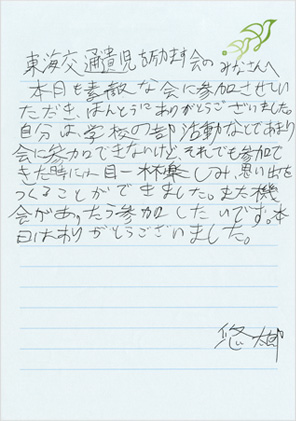 東海交通遺児を励ます会のみなさんへ
本日も素敵な会に参加させてい
ただき、ほんとうにありがとうございました。
自分は、学校の部活動などであまり
会に参加できないけど、それでも参加で
きた時には目一杯楽しみ、思い出を
つくることができました。また機
会があったら参加したいです。本
日はありがとうございました。
悠太郎